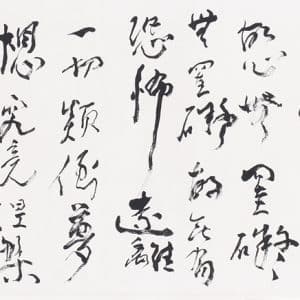 故心無罣礙
無罣礙故無有
恐怖遠離
一切顛倒夢
想究竟涅槃